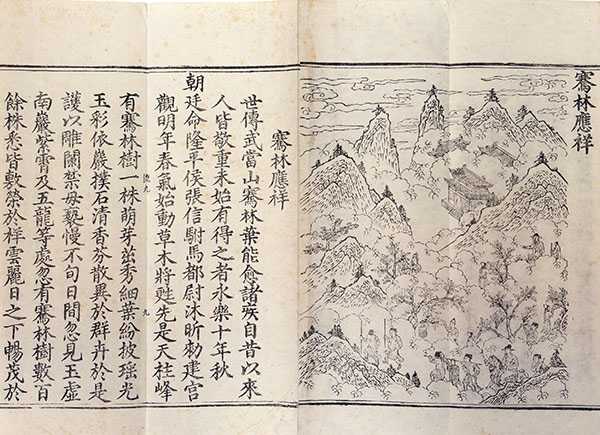 騫林應祥
騫林應祥
世傳武當山騫林葉能愈諸疾自昔以來
人皆敬重未始有得之者永樂十年秋
朝廷命隆平侯張信駙馬都尉沐昕勑建宮
觀明年春氣始動草木將甦先是天柱峰
有騫林樹一株萌芽茁秀細葉紛披瑤光
玉彩依巖撲石清香芬散異於群卉於是
護以雕闌禁毋褻慢不旬日間忽見玉虛
南巖紫霄及五龍等處忽有騫林樹數百
餘株悉皆敷榮於祥雲麗日之下暢茂於